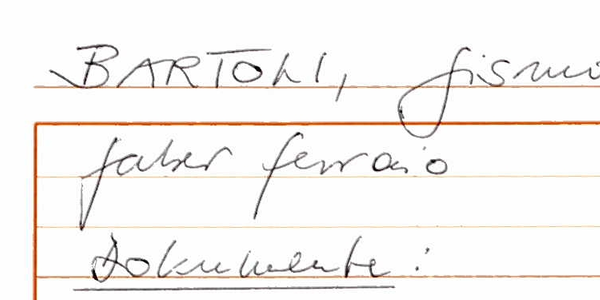 BARTOLI, Gismo
faber ferraio
Dokumente: